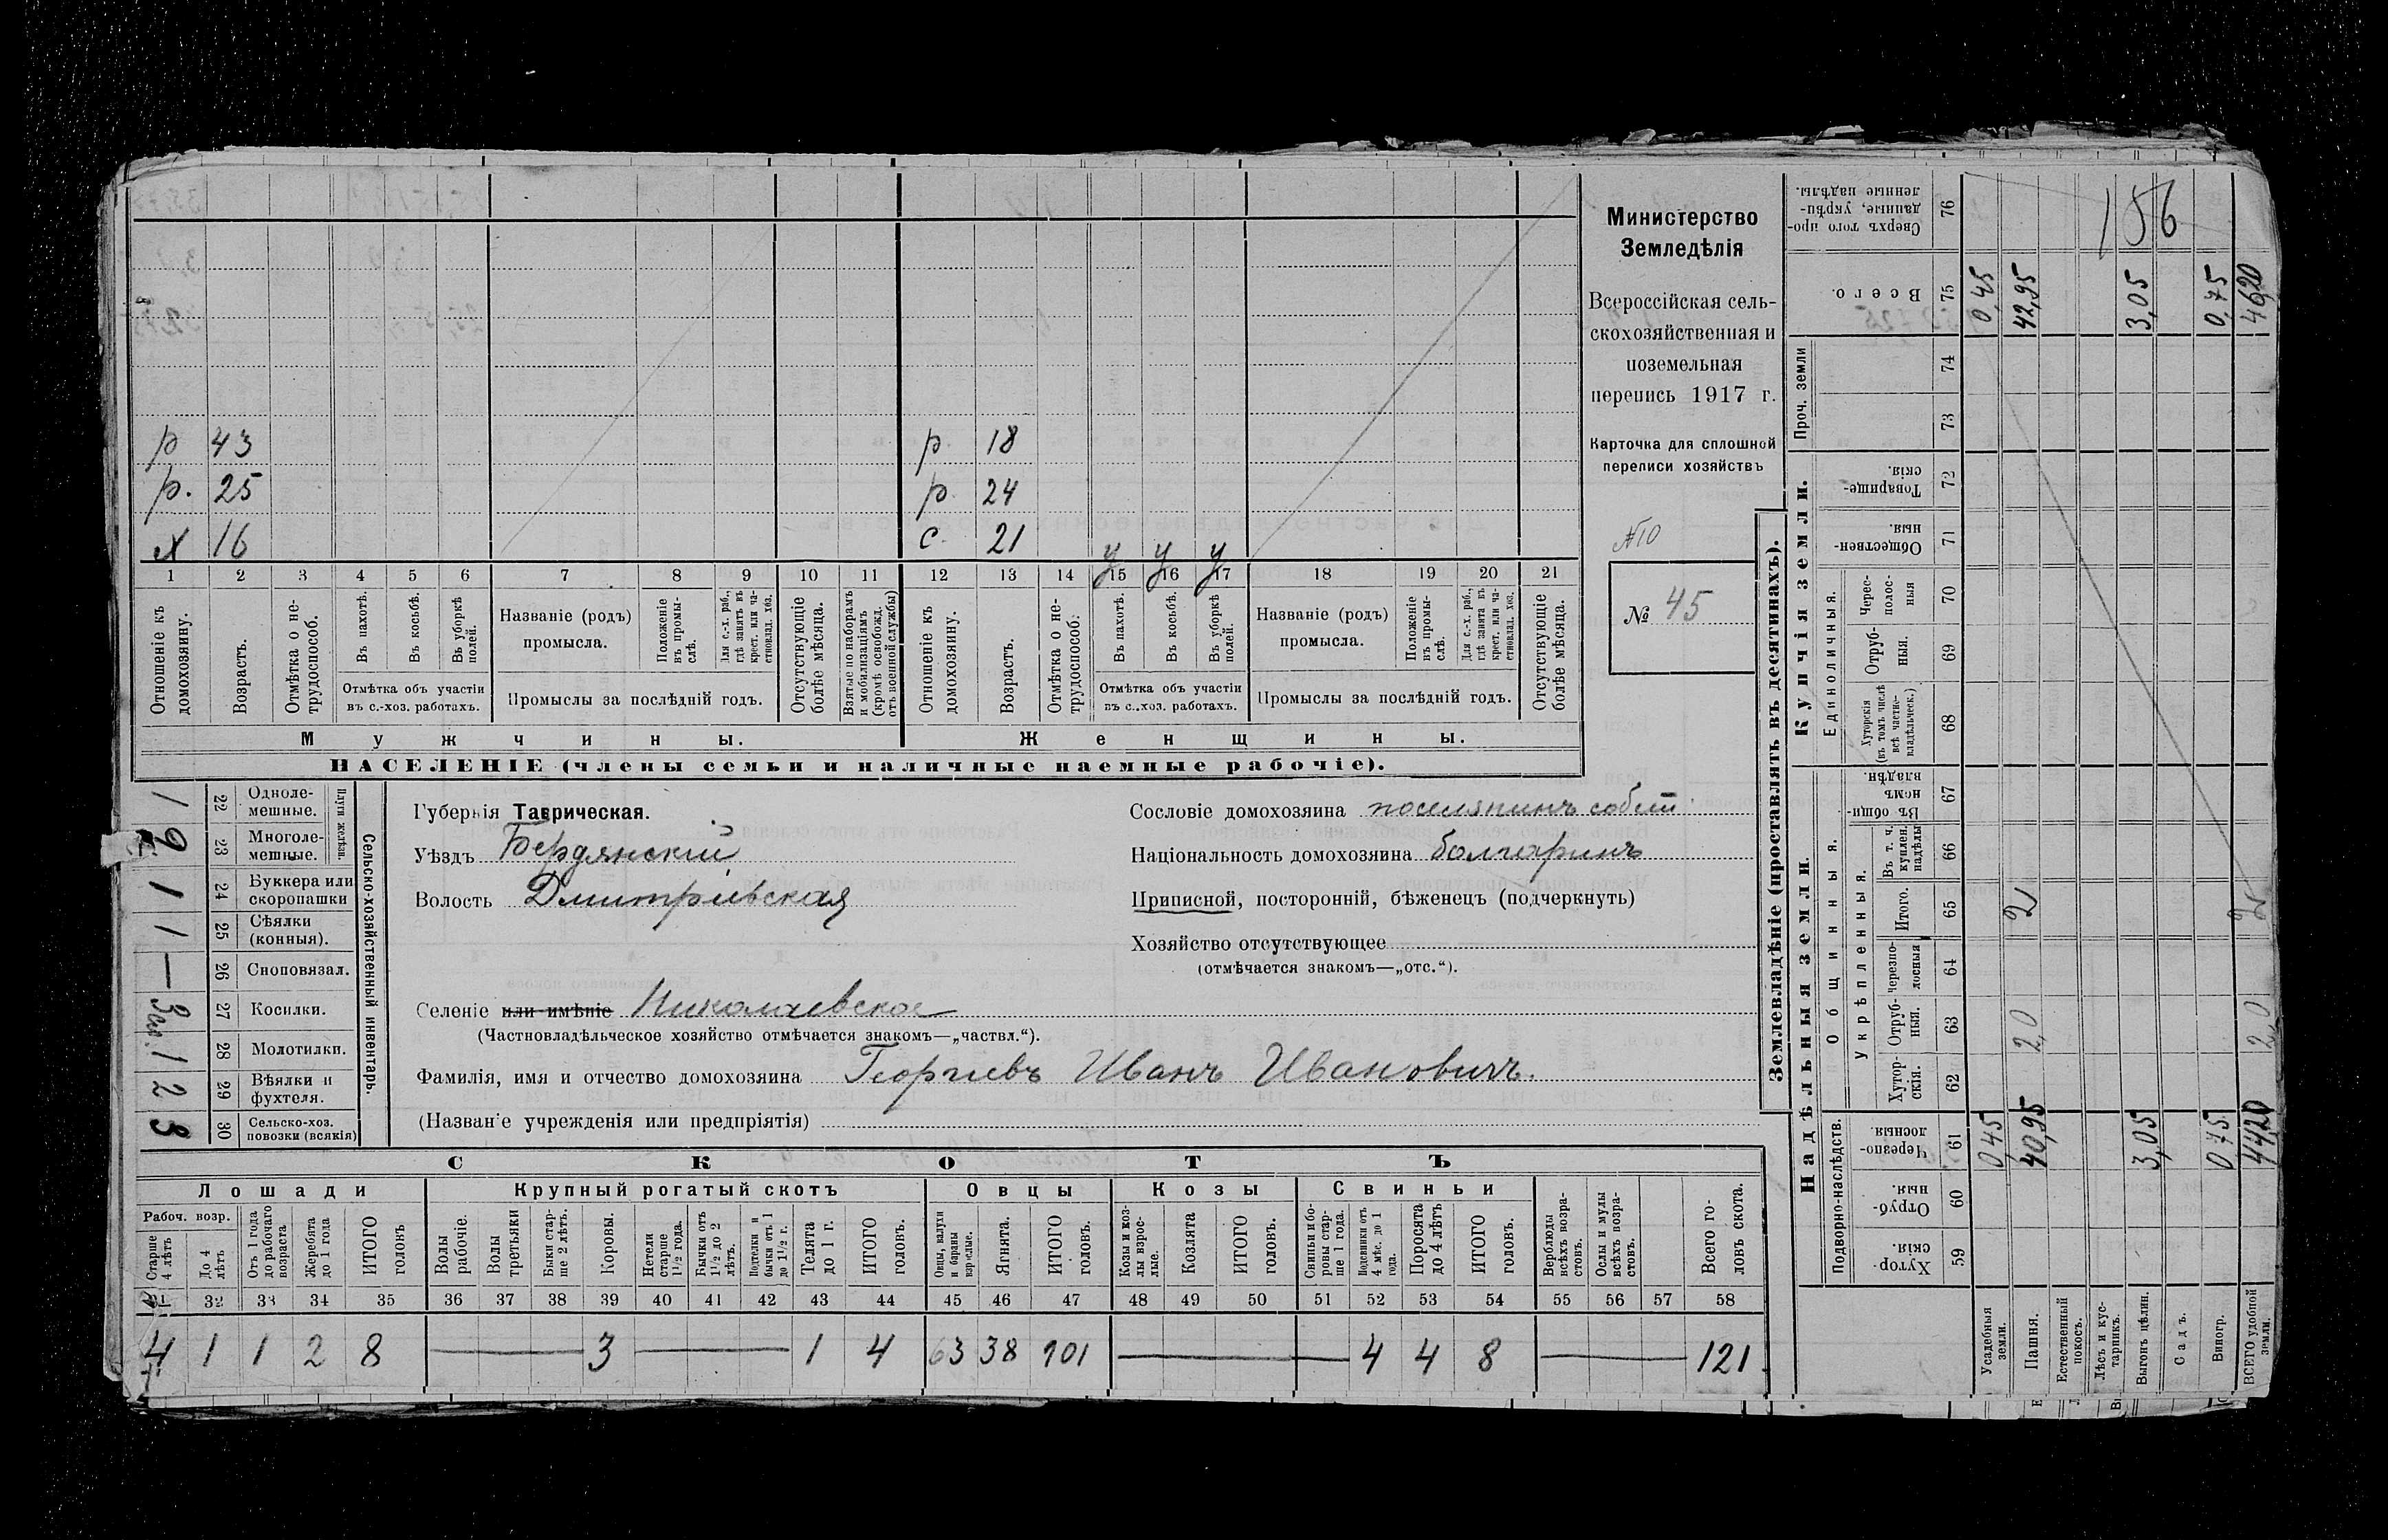 р 43 р. 18
р. 25 р. 24
х 16 с. 21 у у у
1 2 3 4 5 6 7 8 9 10 11 12 13 14 15 16 17 18 19 20 21
Отношеніе къ домохозяину.
Возрастъ.
Отмѣтка о нетрудоспособ.
Въ пахотѣ.
Въ косьбѣ.
Въ уборкѣ полей.
Отмѣтка объ участіи
въ с.-хоз. работахъ.
Названіе (родъ)
промысла.
Положеніе въ промыслѣ.
Для с.-х. раб., гдѣ занятъ въ крест. или частновлад. хоз.
Промыслы за послѣдній годъ.
Отсутствующіе болѣе мѣсяца.
Взятые по наборамъ и мобилизаціямъ (кромѣ освобожд. отъ военной службы)
Отношеніе къ домохозяину.
Возрастъ.
Отмѣтка о нетрудоспособ.
Въ пахотѣ.
Въ косьбѣ.
Въ уборкѣ полей.
Отмѣтка объ участіи
въ с.-хоз. работахъ.
Названіе (родъ)
промысла.
Положеніе въ промыслѣ.
Для с.-х. раб., гдѣ занята въ крест. или частновлад. хоз.
Промыслы за послѣдній годъ.
Отсутствующіе болѣе мѣсяца.
Мужчины. Женщины.
НАСЕЛЕНІЕ (члены семьи и наличные наемные рабочіе).
Министерство
Земледѣлія
Всероссійская сель-
скохозяйственная и
поземельная
перепись 1917 г.
Карточка для сплошной
переписи хозяйствъ
№10
№ 45
Сельско-хозяйственный инвентарь.
Плуги желѣз.
1 22 Одноле-
мешные.
23 Многоле-
мешные.
1 24 Буккера или
скоропашки
1 25 Сѣялки
(конныя).
— 26 Сноповязал.
27 Косилки.
1 28 Молотилки.
2 29 Вѣялки и
фухтеля.
3 30 Сельско-хоз.
повозки (всякія)
Губернія Таврическая.
Уѣздъ Бердянскій
Волость Дмитріевская
Селеніе или имѣніе Николаевское
(Частновладѣльческое хозяйство отмѣчается знакомъ—„частвл.“).
Фамилія, имя и отчество домохозяина Георгіевъ Иванъ Ивановичъ.
(Названіе учрежденія или предпріятія)
Сословіе домохозяина поселянинъ собст.
Національность домохозяина болгаринъ
Приписной, посторонній, бѣженецъ (подчеркнуть)
Хозяйство отсутствующее
(отмѣчается знакомъ—„отс.“).
СКОТЪ
Лошади Крупный рогатый скотъ Овцы Козы Свиньи
Рабоч. возр.
Старше 4 лѣтъ
До 4 лѣтъ
Отъ 1 года до рабочаго возраста
Жеребята до 1 года
ИТОГО головъ
Волы рабочіе.
Волы третьяки
Быки старше 2 лѣтъ.
Коровы.
Нетели старше 1½ года.
Бычки отъ 1½ до 2 лѣтъ.
Подтелки и бычки отъ 1 до 1½ г.
Телята до 1 г.
ИТОГО головъ.
Овцы, валухи и бараны взрослые.
Ягнята.
ИТОГО головъ.
Козы и козлы взрослые.
Козлята
ИТОГО головъ.
Свиньи и боровы старше 1 года.
Подсвинки отъ 4 мѣс. до 1 года.
Поросята до 4 лѣтъ
ИТОГО головъ.
Верблюды всѣхъ возрастовъ.
Ослы и мулы всѣхъ возрастовъ.
Всего головъ скота.
31 32 33 34 35 36 37 38 39 40 41 42 43 44 45 46 47 48 49 50 51 52 53 54 55 56 57 58
4 1 1 2 8 — 3 — 1 4 63 38 101 — 4 4 8 — 121
Землевладѣніе (проставлять въ десятинахъ).
Надѣльныя земли. Купчія земли. Проч. земли
Подворно-наслѣдств.
Общинныя.
Укрѣпленныя.
Единоличныя.
Хуторскія. 59
Отрубныя. 60
Черезполосныя. 61
Хуторскія. 62
Отрубныя. 63
черезполосныя 64
Итого. 65
Въ т. ч. куплен. надѣлы 66
Въ общинномъ владѣн. 67
Хуторскія (въ томъ числѣ всѣ частновладѣльческ.) 68
Отрубныя. 69
Чересполосныя 70
Общественныя. 71
Товарищескія. 72
73
74
Всего. 75
Сверхъ того проданные, укрѣпленные надѣлы. 76
156
Усадебныя земли. 0,45 0,45
Пашня. 40,95 2,0 2 42,95
Естественный покосъ.
Лѣсъ и кустарникъ.
Выгонъ цѣлин. 3,05 3,05
Садъ.
Виногр. 0,75 0,75
ВСЕГО удобной земли. 44,20 2,0 2 46,20